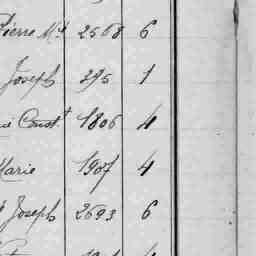 Pierre M.ie 2568 6
Joseph 295 1
Const.t 1806 4
Marie 1907 4
Joseph 2693 6